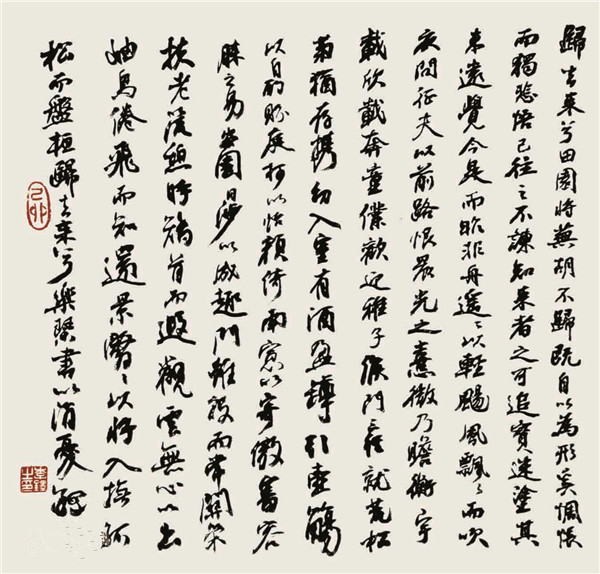 歸去来兮田園將蕪胡不歸既自以為形奚惆悵
而獨悲悟已往之不諫知来者之可追實迷塗其
未遠覺今是而昨非舟遙〻以輕颺風飄〻而吹
衣問征夫以前路恨晨光之熹微乃瞻衡宇
載欣載奔童僕歡迎稚子候門三徑就荒松
菊猶存携幼入室有酒盈罇引壺觴
以自酌眄庭柯以怡顏倚南窓以寄傲審容
膝之易安園日涉以成趣門雖設而常關策
扶老流憩時矯首而遐觀雲無心以出
岫鳥倦飛而知還景翳〻以將入撫孤
松而盤桓歸去来兮樂琴書以消憂